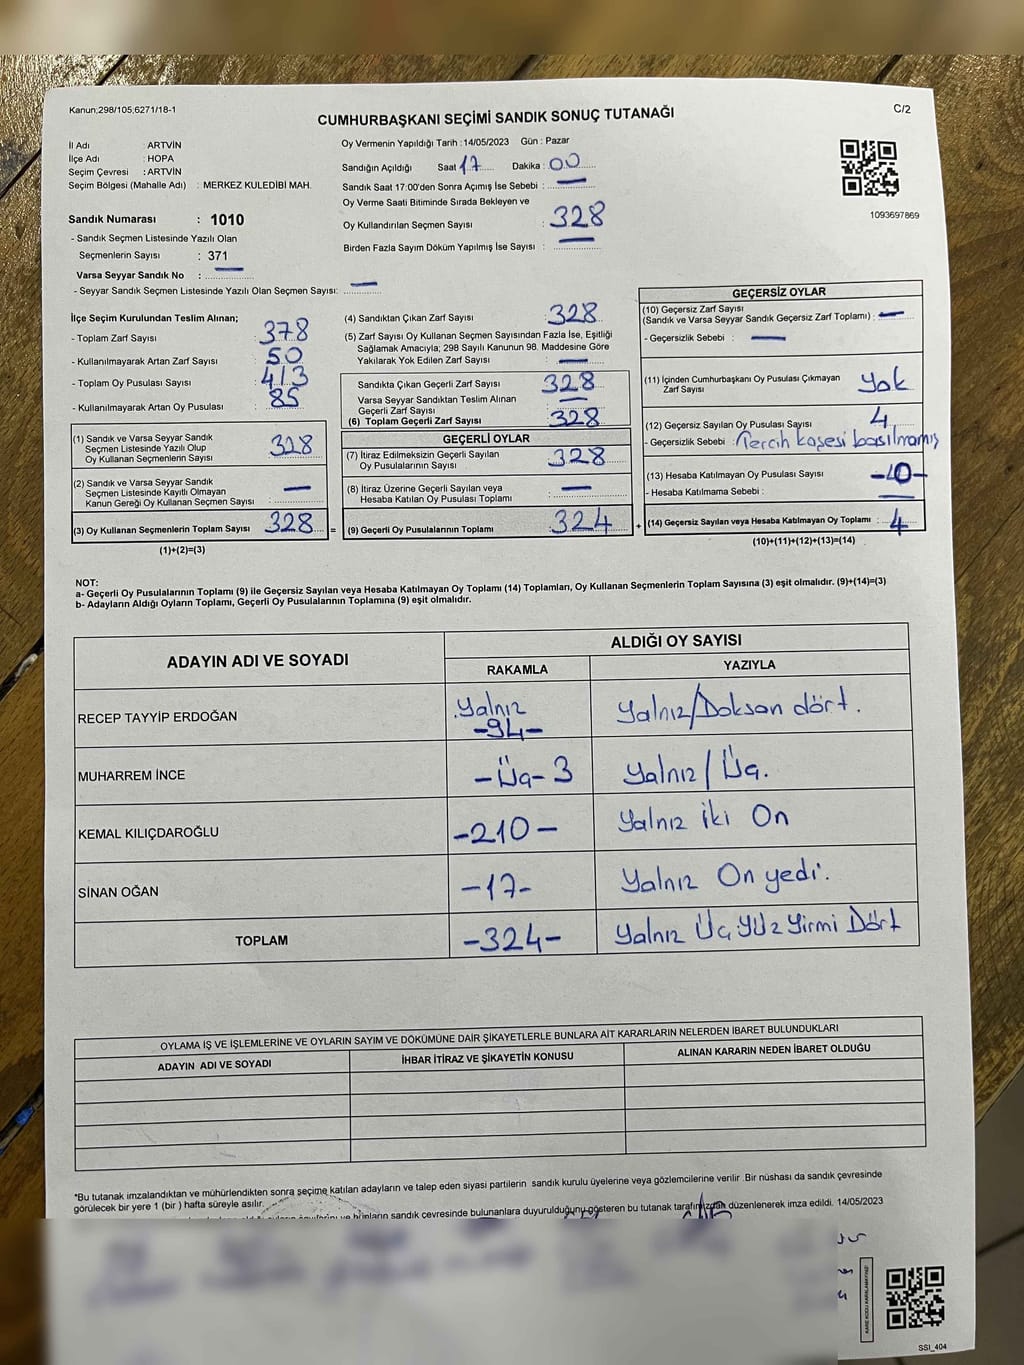 Kanun;298/105;6271/18-1
C/2
CUMHURBAŞKANI SEÇİMİ SANDIK SONUÇ TUTANAĞI
İl Adı : ARTVİN
İlçe Adı : HOPA
Seçim Çevresi : ARTVİN
Seçim Bölgesi (Mahalle Adı) : MERKEZ KULEDİBİ MAH.
Sandık Numarası : 1010
- Sandık Seçmen Listesinde Yazılı Olan
Seçmenlerin Sayısı : 371
Varsa Seyyar Sandık No : —
- Seyyar Sandık Seçmen Listesinde Yazılı Olan Seçmen Sayısı: —
Oy Vermenin Yapıldığı Tarih :14/05/2023 Gün : Pazar
Sandığın Açıldığı Saat 17 Dakika : 00
Sandık Saat 17:00'den Sonra Açımış İse Sebebi : —
Oy Verme Saati Bitiminde Sırada Bekleyen ve
Oy Kullandırılan Seçmen Sayısı : 328
Birden Fazla Sayım Döküm Yapılmış İse Sayısı : —
1093697869
İlçe Seçim Kurulundan Teslim Alınan;
- Toplam Zarf Sayısı : 378
- Kullanılmayarak Artan Zarf Sayısı : 50
- Toplam Oy Pusulası Sayısı : 413
- Kullanılmayarak Artan Oy Pusulası : 85
(1) Sandık ve Varsa Seyyar Sandık
Seçmen Listesinde Yazılı Olup
Oy Kullanan Seçmenlerin Sayısı : 328
(2) Sandık ve Varsa Seyyar Sandık
Seçmen Listesinde Kayıtlı Olmayan
Kanun Gereği Oy Kullanan Seçmen Sayısı : —
(3) Oy Kullanan Seçmenlerin Toplam Sayısı : 328 =
(1)+(2)=(3)
(4) Sandıktan Çıkan Zarf Sayısı : 328
(5) Zarf Sayısı Oy Kullanan Seçmen Sayısından Fazla İse, Eşitliği
Sağlamak Amacıyla; 298 Sayılı Kanunun 98. Maddesine Göre
Yakılarak Yok Edilen Zarf Sayısı : —
Sandıkta Çıkan Geçerli Zarf Sayısı : 328
Varsa Seyyar Sandıktan Teslim Alınan
Geçerli Zarf Sayısı : —
(6) Toplam Geçerli Zarf Sayısı : 328
GEÇERLİ OYLAR
(7) İtiraz Edilmeksizin Geçerli Sayılan
Oy Pusulalarının Sayısı : 328
(8) İtiraz Üzerine Geçerli Sayılan veya
Hesaba Katılan Oy Pusulası Toplamı : —
(9) Geçerli Oy Pusulalarının Toplamı : 324 +
GEÇERSİZ OYLAR
(10) Geçersiz Zarf Sayısı
(Sandık ve Varsa Seyyar Sandık Geçersiz Zarf Toplamı) : —
- Geçersizlik Sebebi : —
(11) İçinden Cumhurbaşkanı Oy Pusulası Çıkmayan
Zarf Sayısı : Yok
(12) Geçersiz Sayılan Oy Pusulası Sayısı : 4
- Geçersizlik Sebebi : Tercih kaşesi basılmamış
(13) Hesaba Katılmayan Oy Pusulası Sayısı
- Hesaba Katılmama Sebebi : —
(14) Geçersiz Sayılan veya Hesaba Katılmayan Oy Toplamı : 4
(10)+(11)+(12)+(13)=(14)
NOT:
a- Geçerli Oy Pusulalarının Toplamı (9) ile Geçersiz Sayılan veya Hesaba Katılmayan Oy Toplamı (14) Toplamları, Oy Kullanan Seçmenlerin Toplam Sayısına (3) eşit olmalıdır. (9)+(14)=(3)
b- Adayların Aldığı Oyların Toplamı, Geçerli Oy Pusulalarının Toplamına (9) eşit olmalıdır.
ADAYIN ADI VE SOYADI
ALDIĞI OY SAYISI
RAKAMLA YAZIYLA
RECEP TAYYİP ERDOĞAN Yalnız -94- Yalnız/Doksan dört.
MUHARREM İNCE -Üç- 3 Yalnız / Üç.
KEMAL KILIÇDAROĞLU -210- Yalnız İki On
SİNAN OĞAN -17- Yalnız On yedi.
TOPLAM -324- Yalnız Üç Yüz Yirmi Dört
OYLAMA İŞ VE İŞLEMLERİNE VE OYLARIN SAYIM VE DÖKÜMÜNE DAİR ŞİKAYETLERLE BUNLARA AİT KARARLARIN NELERDEN İBARET BULUNDUKLARI
ADAYIN ADI VE SOYADI İHBAR İTİRAZ VE ŞİKAYETİN KONUSU ALINAN KARARIN NEDEN İBARET OLDUĞU
*Bu tutanak imzalandıktan ve mühürlendikten sonra seçime katılan adayların ve talep eden siyasi partilerin sandık kurulu üyelerine veya gözlemcilerine verilir .Bir nüshası da sandık çevresinde
görülecek bir yere 1 (bir ) hafta süreyle asılır.
bunların sandık çevresinde bulunanlara duyurulduğunu gösteren bu tutanak tarafımızdan düzenlenerek imza edildi. 14/05/2023
SSI_404